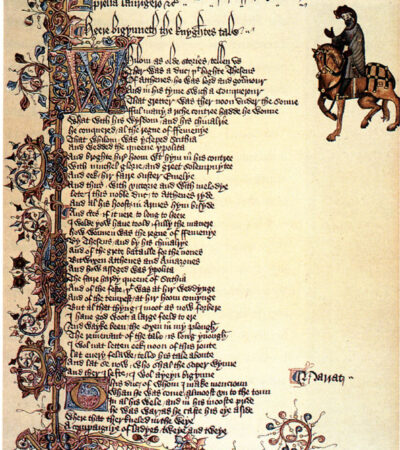 prelia laurigero &c
Heere bigynneth the knyghtes tale
Whilom as olde stories tellen us
Ther was a duc þt highte Theseus
Of Atthenes he was lord and gouernour
And in his tyme swich a Conquerour
That gretter was ther noon vnder the sonne
fful many a riche contree hadde he wonne
What with his wysdom and his chiualrie
He conquered al the regne of ffemenye
That whilom was ycleped Scithia
And wedded the queene ypolita
And broghte hir hoom wt hym in his contree
With muchel glorie and greet solempnytee
And eek hir faire suster Emelye
And thus with victorie and with melodye
Lete I this noble duc to Atthenes ryde
And al his hoost in Armes hym bisyde
And certes if it nere to long to heere
I wolde yow haue toold fully the manere
How wonnen was the regne of ffemenye
By Theseus and by his chiualrye
And of the grete bataille for the nones
Bitwixen Atthenes and Amazones
And how asseged was ypolita
The faire hardy queene of Scithia
And of the feste þt was at hir weddynge
And of the tempest at hir hoom comynge
But al that thyng I moot as now forbere
I haue god woot a large feeld to ere
And wayke been the Oxen in my plough
The remenant of the tale is long ynough
I wol nat letten eek noon of this route
Lat euery felawe telle his tale aboute
And lat se now who shal the soper wynne
And ther I lefte I wol ayeyn bigynne
This duc of whom I make mencioun
Whan he was come almoost vn to the toun
In al his wele and in his mooste pride
He was war as he caste his eye aside
Where that ther kneled in the weye
A compaignye of ladyes tweye and tweye
Narrat